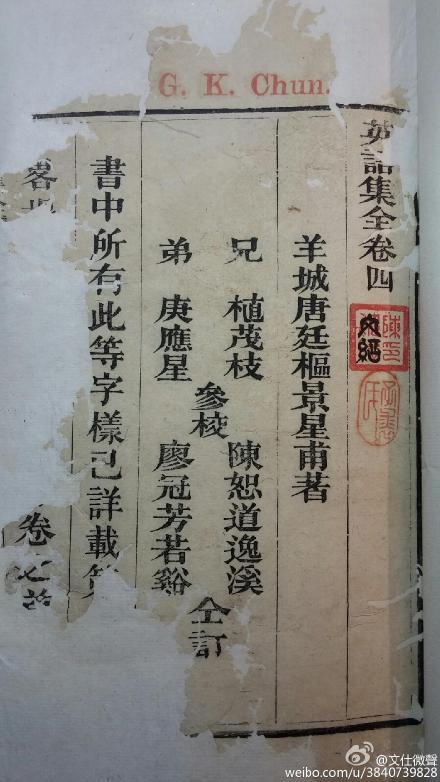 G. K. Chun.
英話集全卷四
羊城唐廷樞景星甫著
兄 植茂枝 陳恕道逸溪
參校 仝訂
弟 庚應星 廖冠芳若谿
書中所有此等字樣已詳載
卷
@文仕微聲
weibo.com/u/3840739828